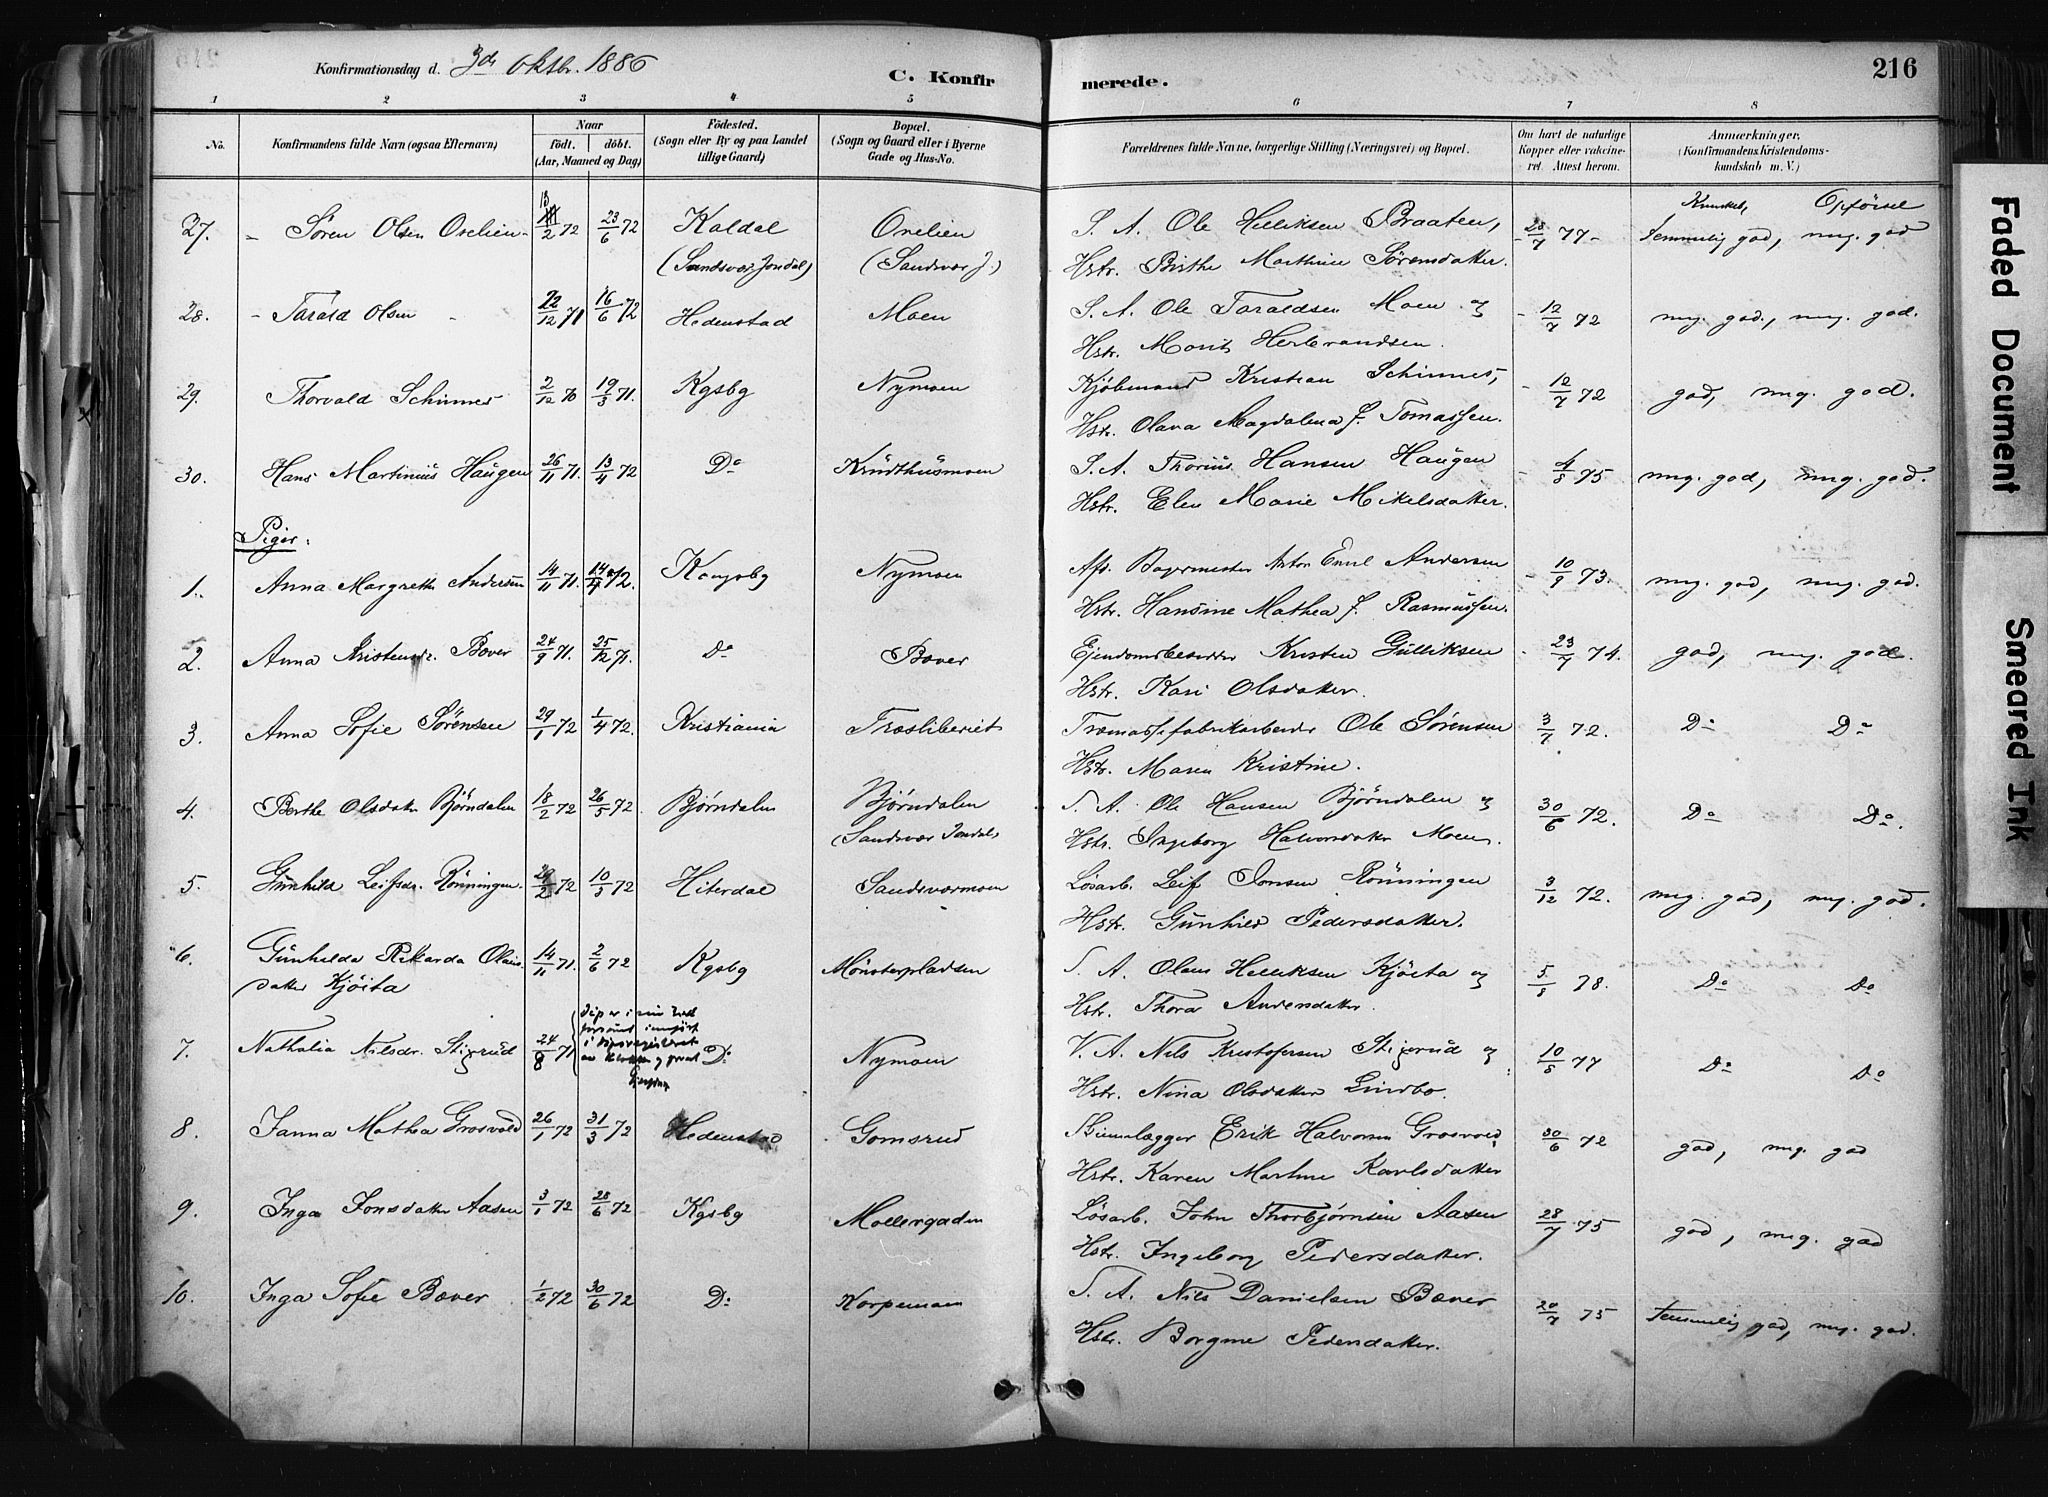 Konfirmationsdag d. 3die Oktbr. 1886
C. Konfirmerede.
216
1 2 3 4 5 6 7 8
No. Konfirmandens fulde Navn (ogsaa Efternavn) Naar født. døbt. (Aar, Maaned og Dag) Fødested. (Sogn eller By og paa Landet tillige Gaard) Bopæl. (Sogn og Gaard eller i Byerne Gade og Hus-No. Forældrenes fulde Navne, borgerlige Stilling (Næringsvei) og Bopæl. Om havt de naturlige Kopper eller vakcineret. Attest herom. Anmærkninger. (Konfirmandens Kristendomskundskab m. V.)
Kundsk. Opförsel
27. Sören Olsen Ovelien 18/2 72 23/6 72 Koldal (Sandsvær Jondal) Ovelien (Sandsvær J.) S. A. Ole Helliksen Braaten, 28/7 77 temmelig god, mg. god
Hstr. Birthe Marthine Sörensdatter.
28. Tarald Olsen 22/12 71 16/6 72 Hedenstad Moen S. A. Ole Taraldsen Moen og 12/7 72 mg. god, mg. god.
Hstr. Marit Herbrandsen.
29. Thorvald Schinnes 2/12 70 19/3 71. Kgsbg Nymoen Kjöbmand Kristian Schinnes, 12/7 72 god, mg. god.
Hstr. Olava Magdalena f. Tomassen.
30. Hans Martinius Haugen 26/11 71. 13/4 72 Do Krudthusmoen S. A. Thorius Hansen Haugen 4/8 75 mg. god, mg. god.
Hstr. Elen Marie Mikelsdatter.
Piger:
1. Anna Margrethe Andersen 14/11 71. 14/4 72. Kongsbg Nymoen Afs. Bagermester Anton Emil Andersen 10/9 73. mg. god, mg. god.
Hstr. Hansine Mathea f. Rasmussen.
2. Anna Kristensdr. Bæver 24/9 71. 25/12 71. Do Bæver Ejendomsbesidder Kristen Gulliksen 23/7 74. god, mg. god.
Hstr. Kari Olsdatter.
3. Anna Sofie Sörensen 29/1 72 1/4 72. Kristiania Træsliberiet Træmassefabrikarbeider Ole Sörensen 3/7 72. Do Do
Hstr. Maren Kristine.
4. Berthe Olsdatr Björndalen 18/2 72 26/5 72. Björndalen Björndalen (Sandsvær Jondal) S. A. Ole Hansen Björndalen og 30/6 72. Do Do.
Hstr. Ingeborg Halvorsdatter Moen.
5. Gunhild Leifsdr. Rönningen. 29/2 72 10/3 72 Hiterdal Sandsværmoen Lösarb. Leif Jonsen Rönningen 3/12 72. mg. god, mg. god.
Hstr. Gunhild Pedersdatter.
6. Gunhilda Rikarda Olausdatter Kjöita 14/11 71. 2/6 72 Kgsbg Mönsterpladsen S. A. Olaus Helliksen Kjöita og 5/8 78. Do Do
Hstr. Thora Andersdatter.
7. Nathalia Nilsdr. Stigerud 24/8 71 Do Nymoen V. A. Nils Kristofersen Stigerud og 10/8 77 Do Do
Hstr. Nina Olsdatter Lindbo.
8. Janna Mathea Grosvold 26/1 72 31/3 72 Hedenstad Gomsrud Skinnelægger Erik Halvorsen Grosvold, 30/6 72 god, mg. god
Hstr. Karen Marthine Karlsdatter
9. Inga Jonsdatter Aasen 3/1 72 28/6 72 Kgsbg Mollergaden Lösarb. John Thorbjörnsen Aasen 28/7 75 god, mg. god
Hstr. Ingeborg Pedersdatter.
10. Inga Sofie Bæver 1/2 72 30/6 72 Do Korpemoen S. A. Nils Danielsen Bæver 20/7 75 temmelig god, mg. god.
Hstr. Borgine Pedersdatter.
Faded Document
Smeared Ink